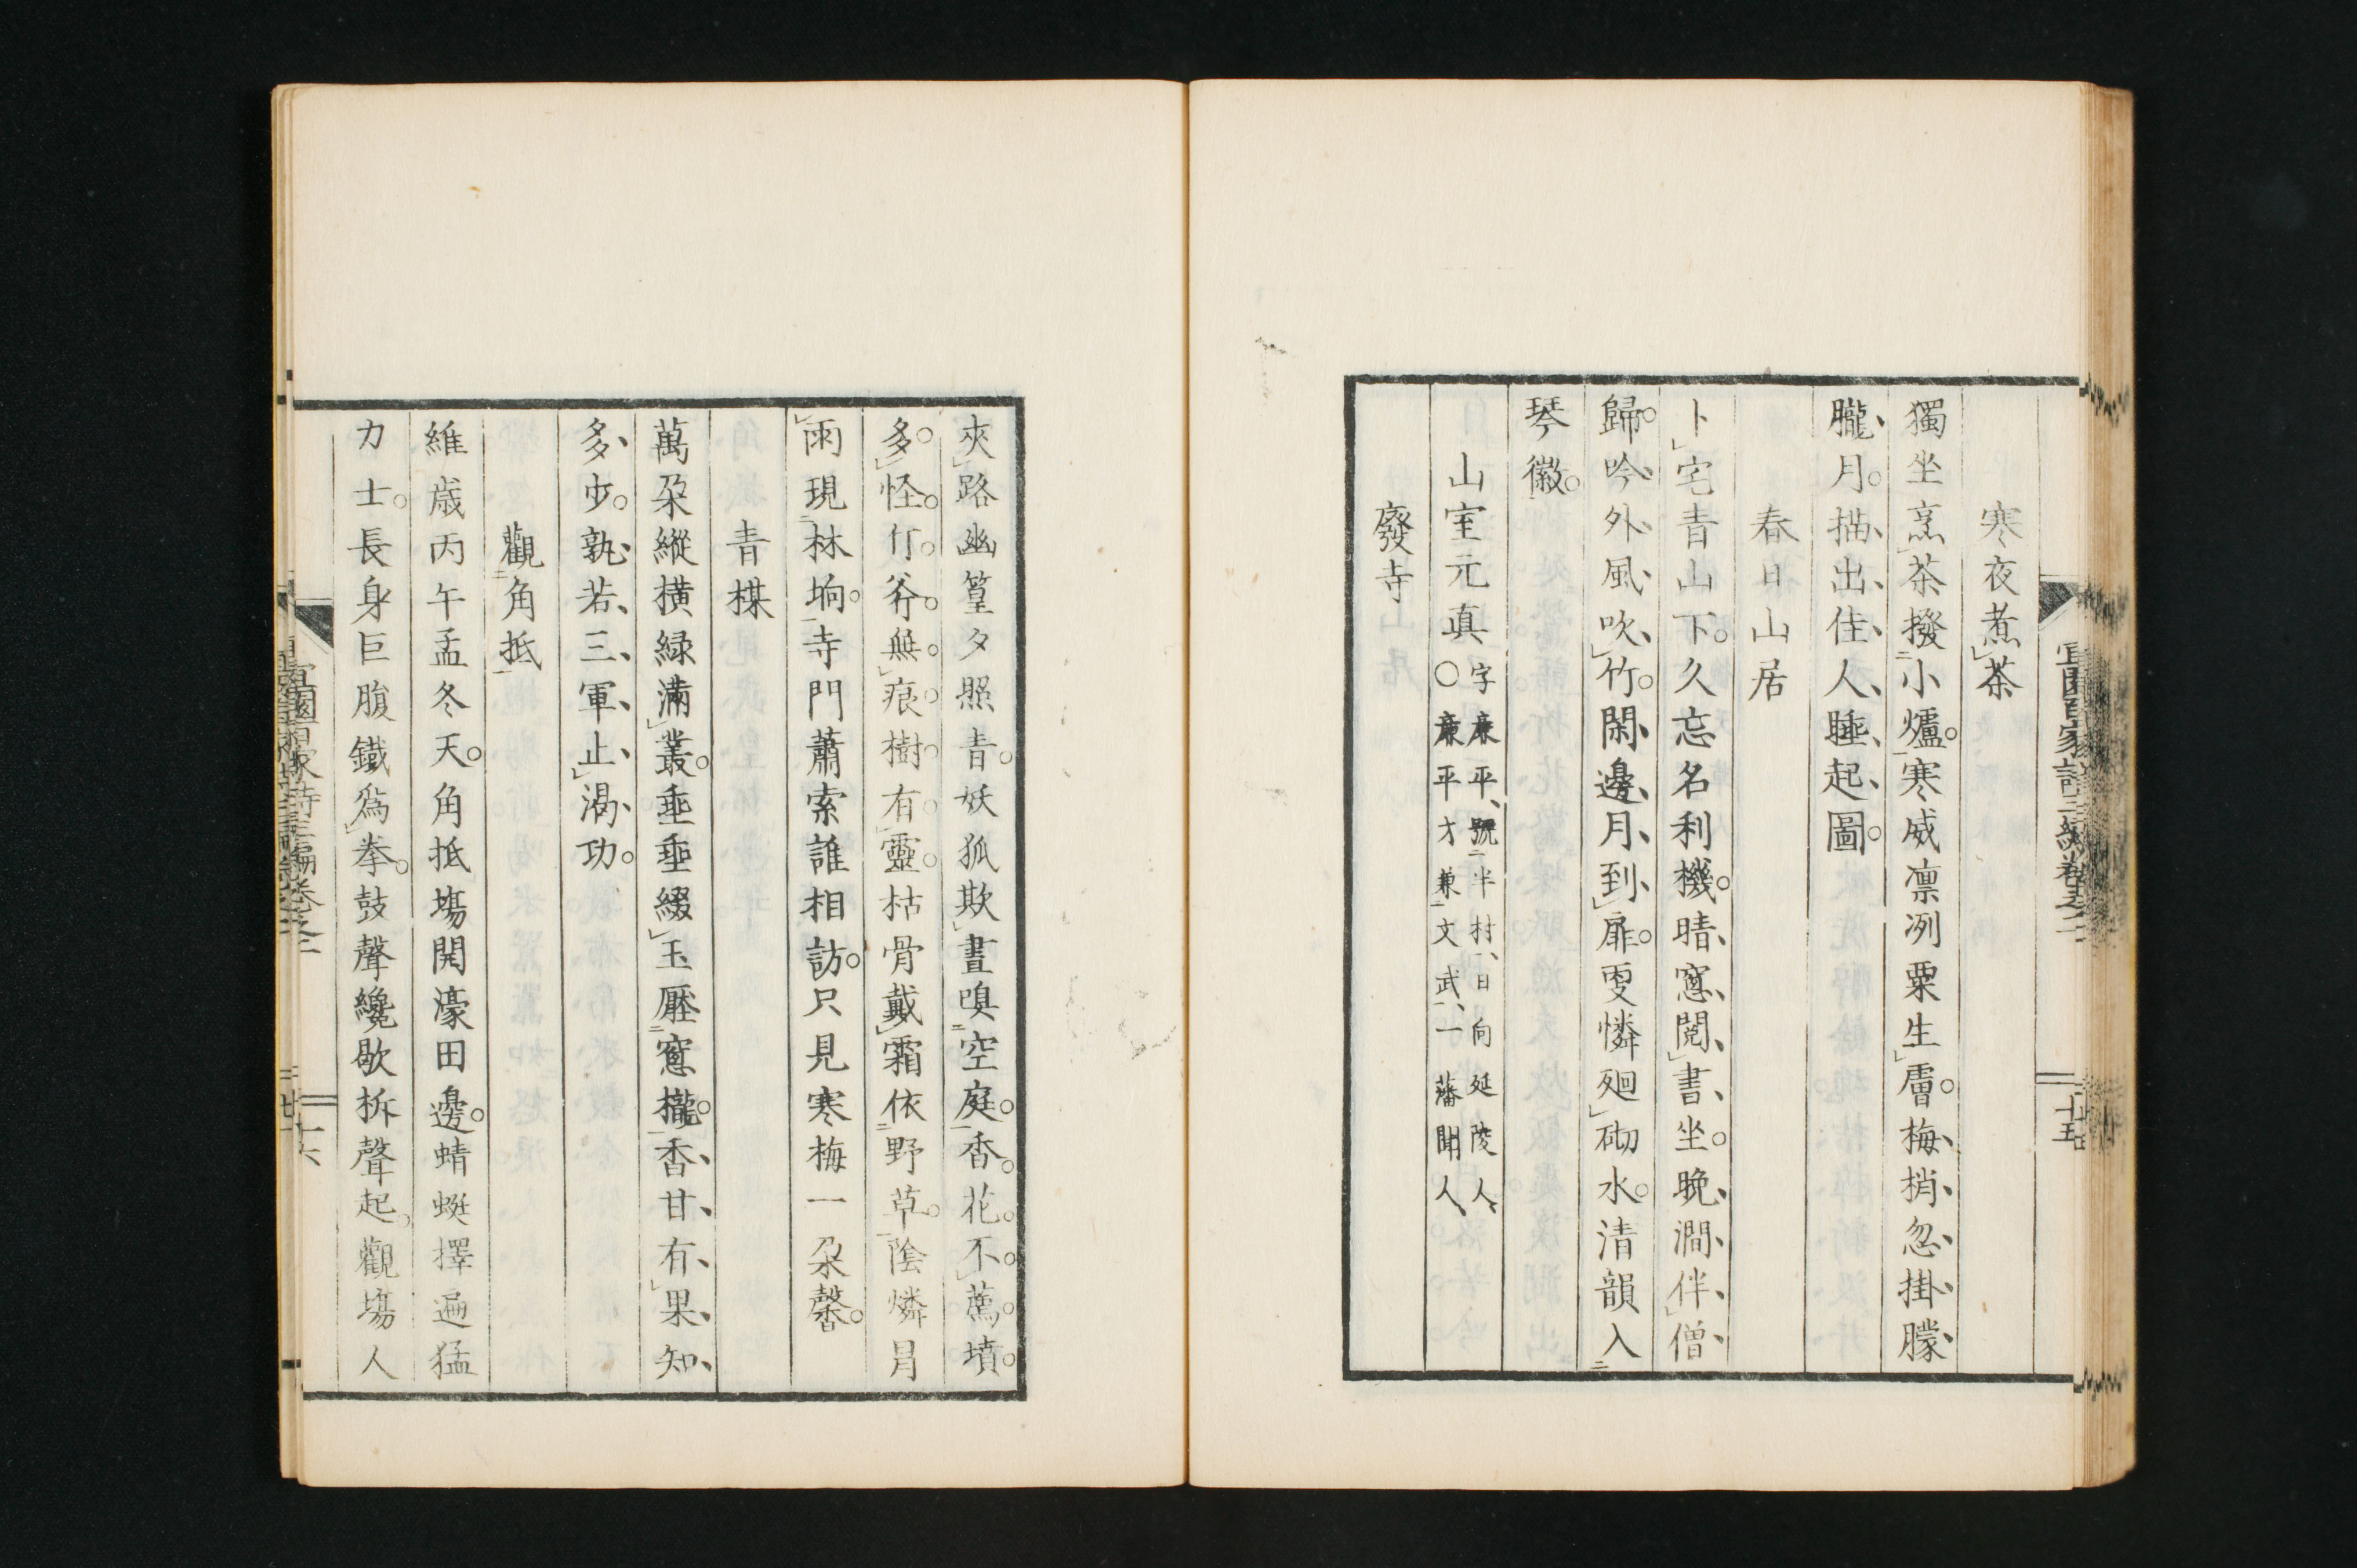 宜園百家詩三編卷之二
十五
寒夜煮茶
獨坐烹茶撥小爐。寒威凛冽粟生膚。梅梢忽掛朦
朧月。描出佳人睡起圖。
春日山居
卜宅青山下。久忘名利機。晴窓閲書坐。晚澗伴僧
歸。吟外風吹竹。閑邊月到扉。更憐廻砌水。清韻入
琴徽。
山室元真 字康平、號半村、日向延陵人、
○康平才兼文武、一藩聞人、
廢寺
夾路幽篁夕照青。妖狐欺晝嗅空庭。香花不薦墳
多怪。斤斧無痕樹有靈。枯骨戴霜依野草。陰燐冐
雨現林坰。寺門蕭索誰相訪。只見寒梅一朶馨。
青楳
萬朶縱橫緑滿叢。垂垂綴玉壓窓櫳。香甘有果知
多少。孰若三軍止渴功。
觀角抵
維歳丙午孟冬天。角抵塲開濠田邊。蜻蜓擇遍猛
力士。長身巨腹鐵爲拳。鼓聲纔歇柝聲起。觀塲人
宜園百家詩三編卷之二
十六